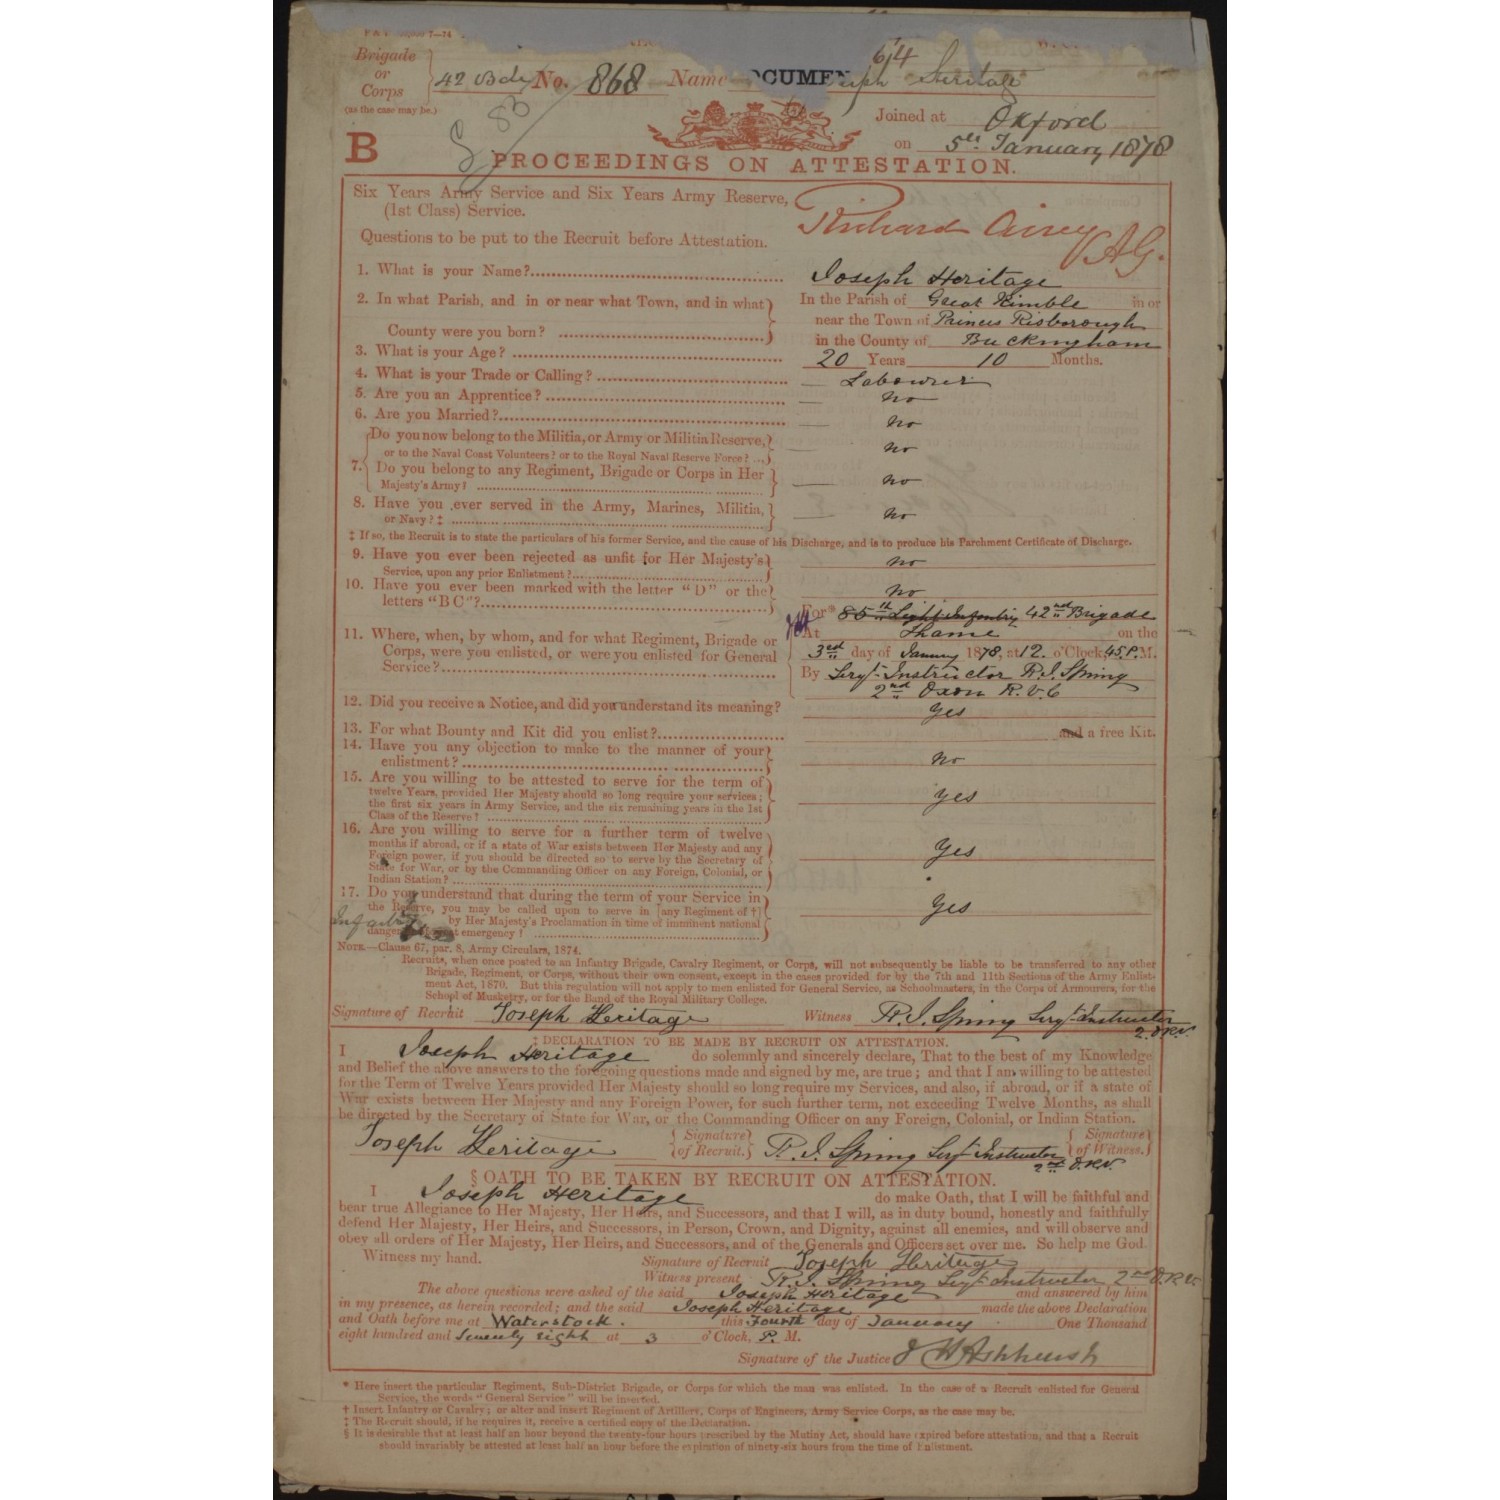 7—74
Brigade or Corps 42 Bde No. 868 Name OCUMEN eph Heritage
614
(as the case may be.)
Joined at Oxford
on 5th January 1878
B
PROCEEDINGS ON ATTESTATION.
Six Years Army Service and Six Years Army Reserve,
(1st Class) Service.
Richard Airey AG.
Questions to be put to the Recruit before Attestation.
1. What is your Name? Joseph Heritage
2. In what Parish, and in or near what Town, and in what In the Parish of Great Kimble in or
near the Town of Princes Risborough
County were you born? in the County of Buckingham
3. What is your Age? 20 Years 10 Months.
4. What is your Trade or Calling? Labourer
5. Are you an Apprentice? no
6. Are you Married? no
Do you now belong to the Militia, or Army or Militia Reserve,
or to the Naval Coast Volunteers? or to the Royal Naval Reserve Force? no
7. Do you belong to any Regiment, Brigade or Corps in Her
Majesty's Army? no
8. Have you ever served in the Army, Marines, Militia,
or Navy? ‡ no
‡ If so, the Recruit is to state the particulars of his former Service, and the cause of his Discharge, and is to produce his Parchment Certificate of Discharge.
9. Have you ever been rejected as unfit for Her Majesty's
Service, upon any prior Enlistment? no
10. Have you ever been marked with the letter "D" or the
letters "BC"? no
For* 85th Light Infantry 42nd Brigade
At Thame on the
11. Where, when, by whom, and for what Regiment, Brigade or
Corps, were you enlisted, or were you enlisted for General
Service?
3rd day of January 1878, at 12. o'Clock, 45 P.M.
By Sergt Instructor R.J. Spring
2nd Oxon R.V.C
12. Did you receive a Notice, and did you understand its meaning? Yes
13. For what Bounty and Kit did you enlist? and a free Kit.
14. Have you any objection to make to the manner of your
enlistment? no
15. Are you willing to be attested to serve for the term of
twelve Years, provided Her Majesty should so long require your services;
the first six years in Army Service, and the six remaining years in the 1st
Class of the Reserve? Yes
16. Are you willing to serve for a further term of twelve
months if abroad, or if a state of War exists between Her Majesty and any
Foreign power, if you should be directed so to serve by the Secretary of
State for War, or by the Commanding Officer on any Foreign, Colonial, or
Indian Station? Yes
17. Do you understand that during the term of your Service in
the Reserve, you may be called upon to serve in [any Regiment of †]
Infantry by Her Majesty's Proclamation in time of imminent national
danger emergency? Yes
NOTE—Clause 67, par. 8, Army Circulars, 1874.
Recruits, when once posted to an Infantry Brigade, Cavalry Regiment, or Corps, will not subsequently be liable to be transferred to any other
Brigade, Regiment, or Corps, without their own consent, except in the cases provided for by the 7th and 11th Sections of the Army Enlist-
ment Act, 1870. But this regulation will not apply to men enlisted for General Service, as Schoolmasters, in the Corps of Armourers, for the
School of Musketry, or for the Band of the Royal Military College.
Signature of Recruit Joseph Heritage Witness R.J. Spring Sergt Instructor
2. O.R.V.
‡ DECLARATION TO BE MADE BY RECRUIT ON ATTESTATION.
I Joseph Heritage do solemnly and sincerely declare, That to the best of my Knowledge
and Belief the above answers to the foregoing questions made and signed by me, are true; and that I am willing to be attested
for the Term of Twelve Years provided Her Majesty should so long require my Services, and also, if abroad, or if a state of
War exists between Her Majesty and any Foreign Power, for such further term, not exceeding Twelve Months, as shall
be directed by the Secretary of State for War, or the Commanding Officer on any Foreign, Colonial, or Indian Station.
Joseph Heritage Signature of Recruit. R.J. Spring Sergt Instructor 2nd O.R.V. Signature of Witness.
§ OATH TO BE TAKEN BY RECRUIT ON ATTESTATION.
I Joseph Heritage do make Oath, that I will be faithful and
bear true Allegiance to Her Majesty, Her Heirs, and Successors, and that I will, as in duty bound, honestly and faithfully
defend Her Majesty, Her Heirs, and Successors, in Person, Crown, and Dignity, against all enemies, and will observe and
obey all orders of Her Majesty, Her Heirs, and Successors, and of the Generals and Officers set over me. So help me God.
Witness my hand. Signature of Recruit Joseph Heritage
Witness present R.J. Spring Sergt Instructor 2nd O.R.V.
The above questions were asked of the said Joseph Heritage and answered by him
in my presence, as herein recorded; and the said Joseph Heritage made the above Declaration
and Oath before me at Waterstock. this Fourth day of January One Thousand
eight hundred and Seventy eight at 3 o'Clock, P. M.
Signature of the Justice J H Ashhurst
* Here insert the particular Regiment, Sub-District Brigade, or Corps for which the man was enlisted. In the case of a Recruit enlisted for General
Service, the words "General Service" will be inserted.
† Insert Infantry or Cavalry; or alter and insert Regiment of Artillery, Corps of Engineers, Army Service Corps, as the case may be.
‡ The Recruit should, if he requires it, receive a certified copy of the Declaration.
§ It is desirable that at least half an hour beyond the twenty-four hours prescribed by the Mutiny Act, should have expired before attestation, and that a Recruit
should invariably be attested at least half an hour before the expiration of ninety-six hours from the time of Enlistment.